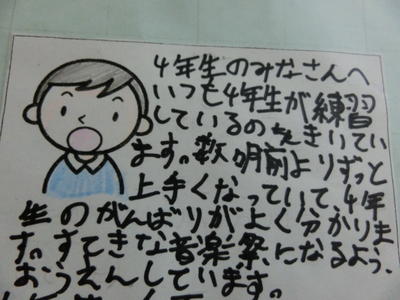 4年生のみなさんへ
いつも4年生が練習
しているのをきいてい
ます。数明前よりずっと
上手くなっていて、4年
生のがんばりがよく分かりま
す。すてきな音楽祭になるよう、
おうえんしています。